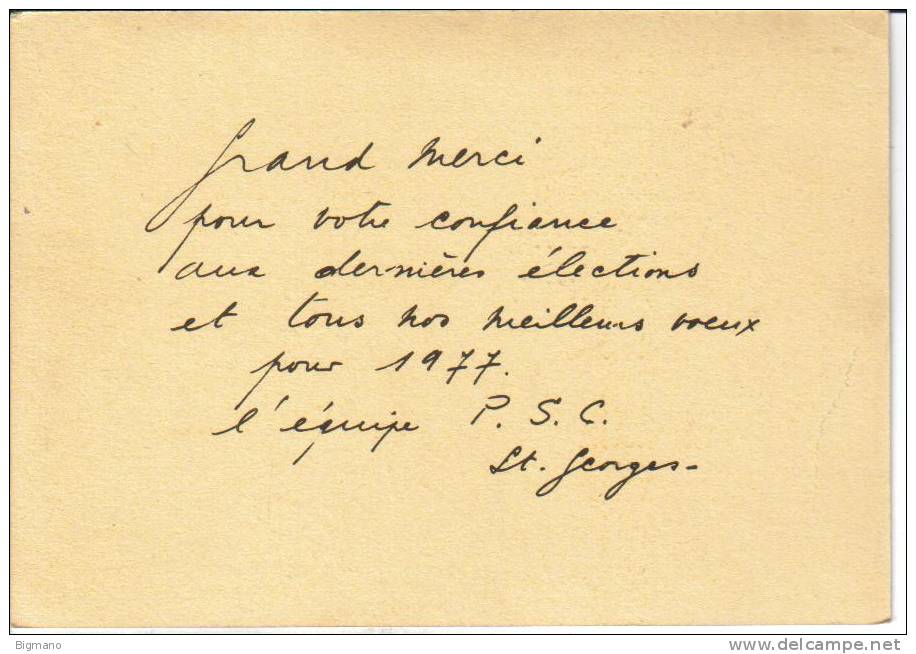 Grand merci
pour votre confiance
aux dernières élections
et tous nos meilleurs voeux
pour 1977.
l'équipe P.S.C.
St. Georges-
Bigmano
delcampe.net